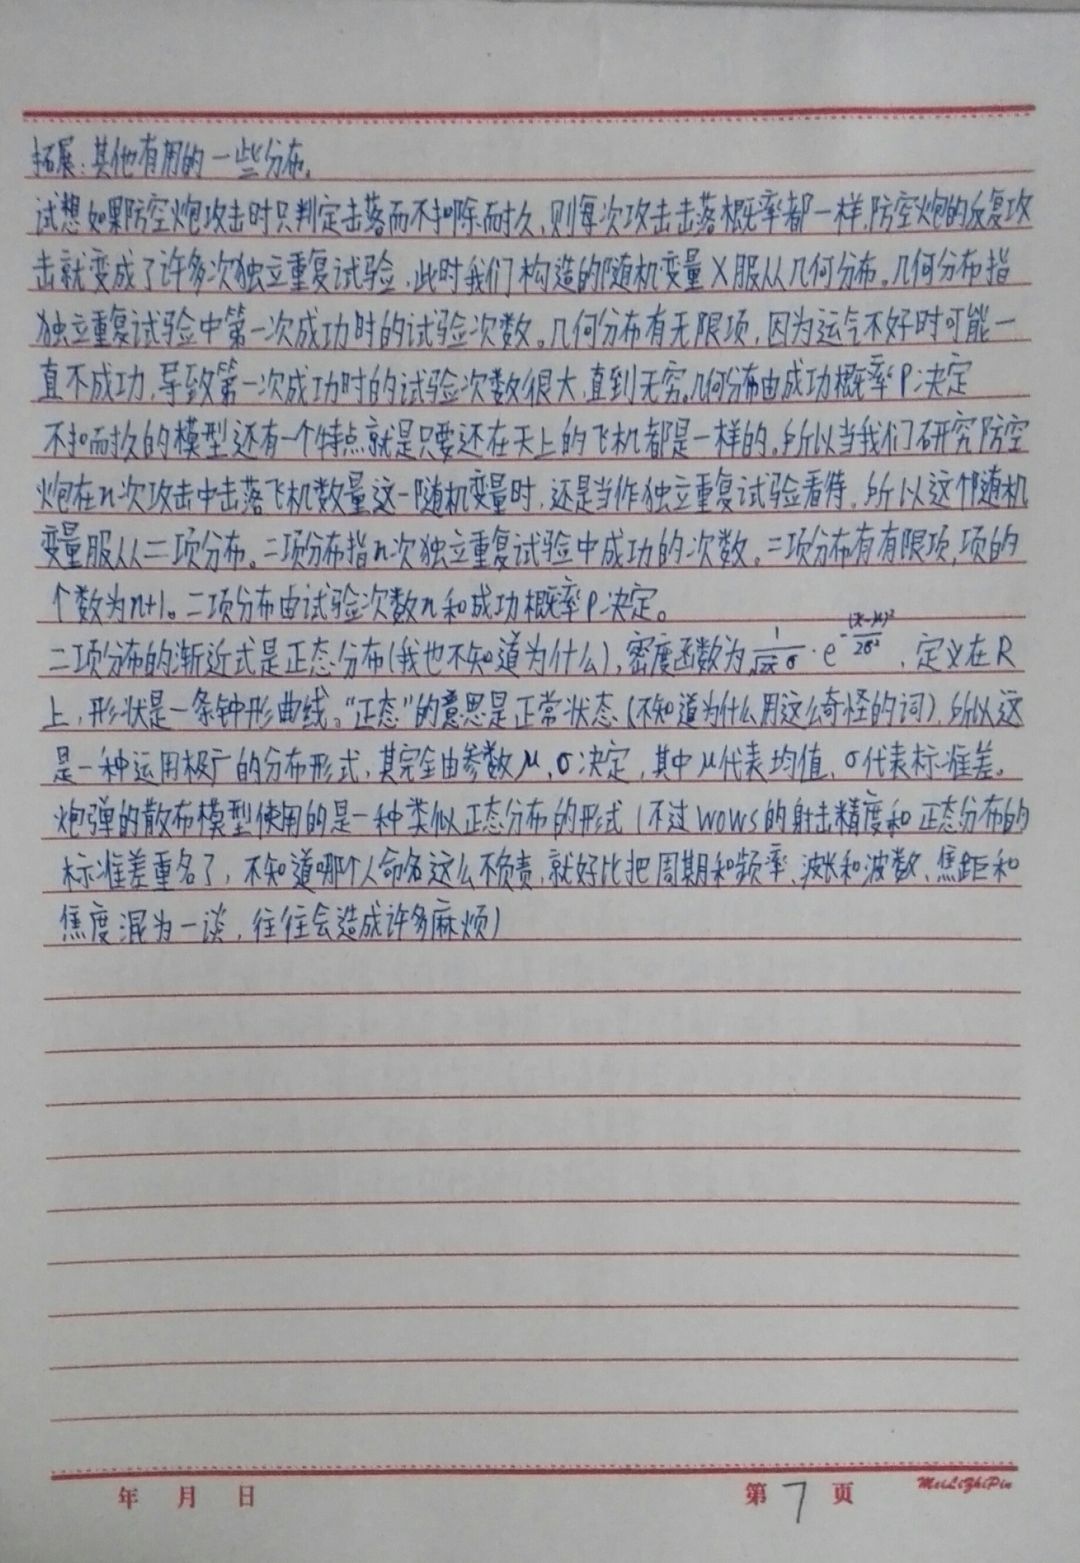 拓展:其他有用的一些分布。
试想如果防空炮攻击时只判定击落而不扣除耐久,则每次攻击击落概率都一样,防空炮的反复攻
击就变成了许多次独立重复试验,此时我们构造的随机变量X服从几何分布。几何分布指
独立重复试验中第一次成功时的试验次数。几何分布有无限项,因为运气不好时可能一
直不成功,导致第一次成功时的试验次数很大,直到无穷。几何分布由成功概率P决定
不扣耐久的模型还有一个特点就是只要还在天上的飞机都是一样的。所以当我们研究防空
炮在n次攻击中击落飞机数量这一随机变量时,还是当作独立重复试验看待。所以这个随机
变量服从二项分布。二项分布指n次独立重复试验中成功的次数。二项分布有有限项,项的
个数为n+1。二项分布由试验次数n和成功概率P决定。
二项分布的渐近式是正态分布(我也不知道为什么),密度函数为1/(√2π σ)·e^(-(x-μ)²/2σ²),定义在R
上,形状是一条钟形曲线。“正态”的意思是正常状态(不知道为什么用这么奇怪的词),所以这
是一种运用极广的分布形式,其完全由参数μ、σ决定,其中μ代表均值、σ代表标准差。
炮弹的散布模型使用的是一种类似正态分布的形式(不过wows的射击精度和正态分布的
标准差重名了,不知道哪个人命名这么不负责,就好比把周期和频率、波长和波数、焦距和
焦度混为一谈,往往会造成许多麻烦)
年 月 日 第7页 MeiLiZhiPin